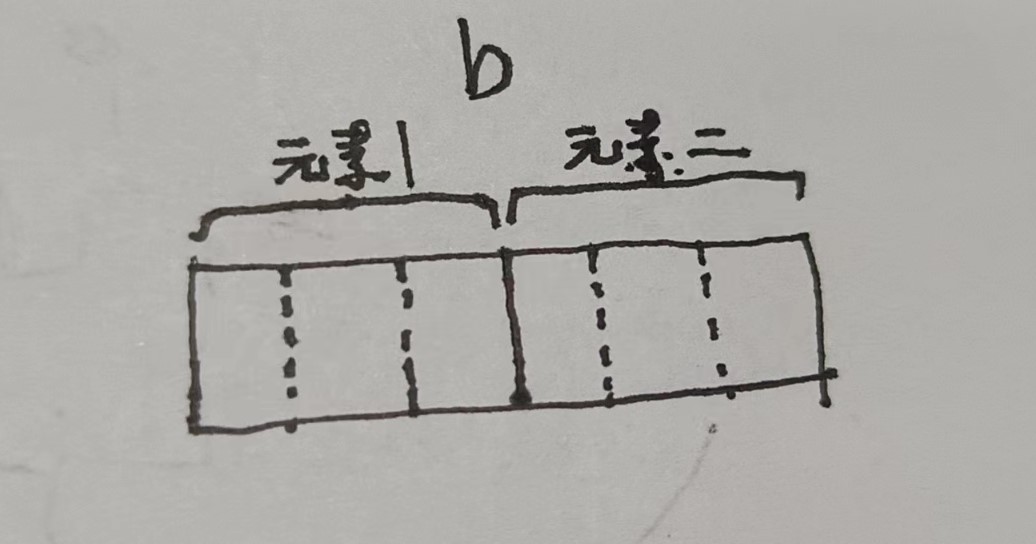 b
元素1 元素二